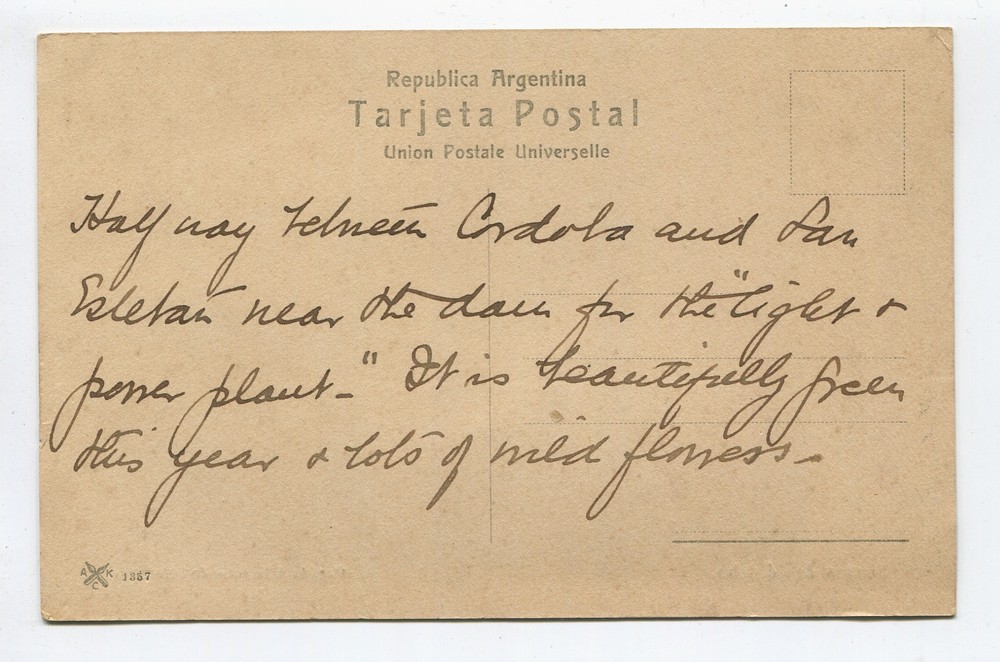 Republica Argentina
Tarjeta Postal
Union Postale Universelle
Half way between Cordoba and San
Esteban near the dam for the "light &
power plant-" It is beautifully green
this year & lots of wild flowers-
A K
C
1357